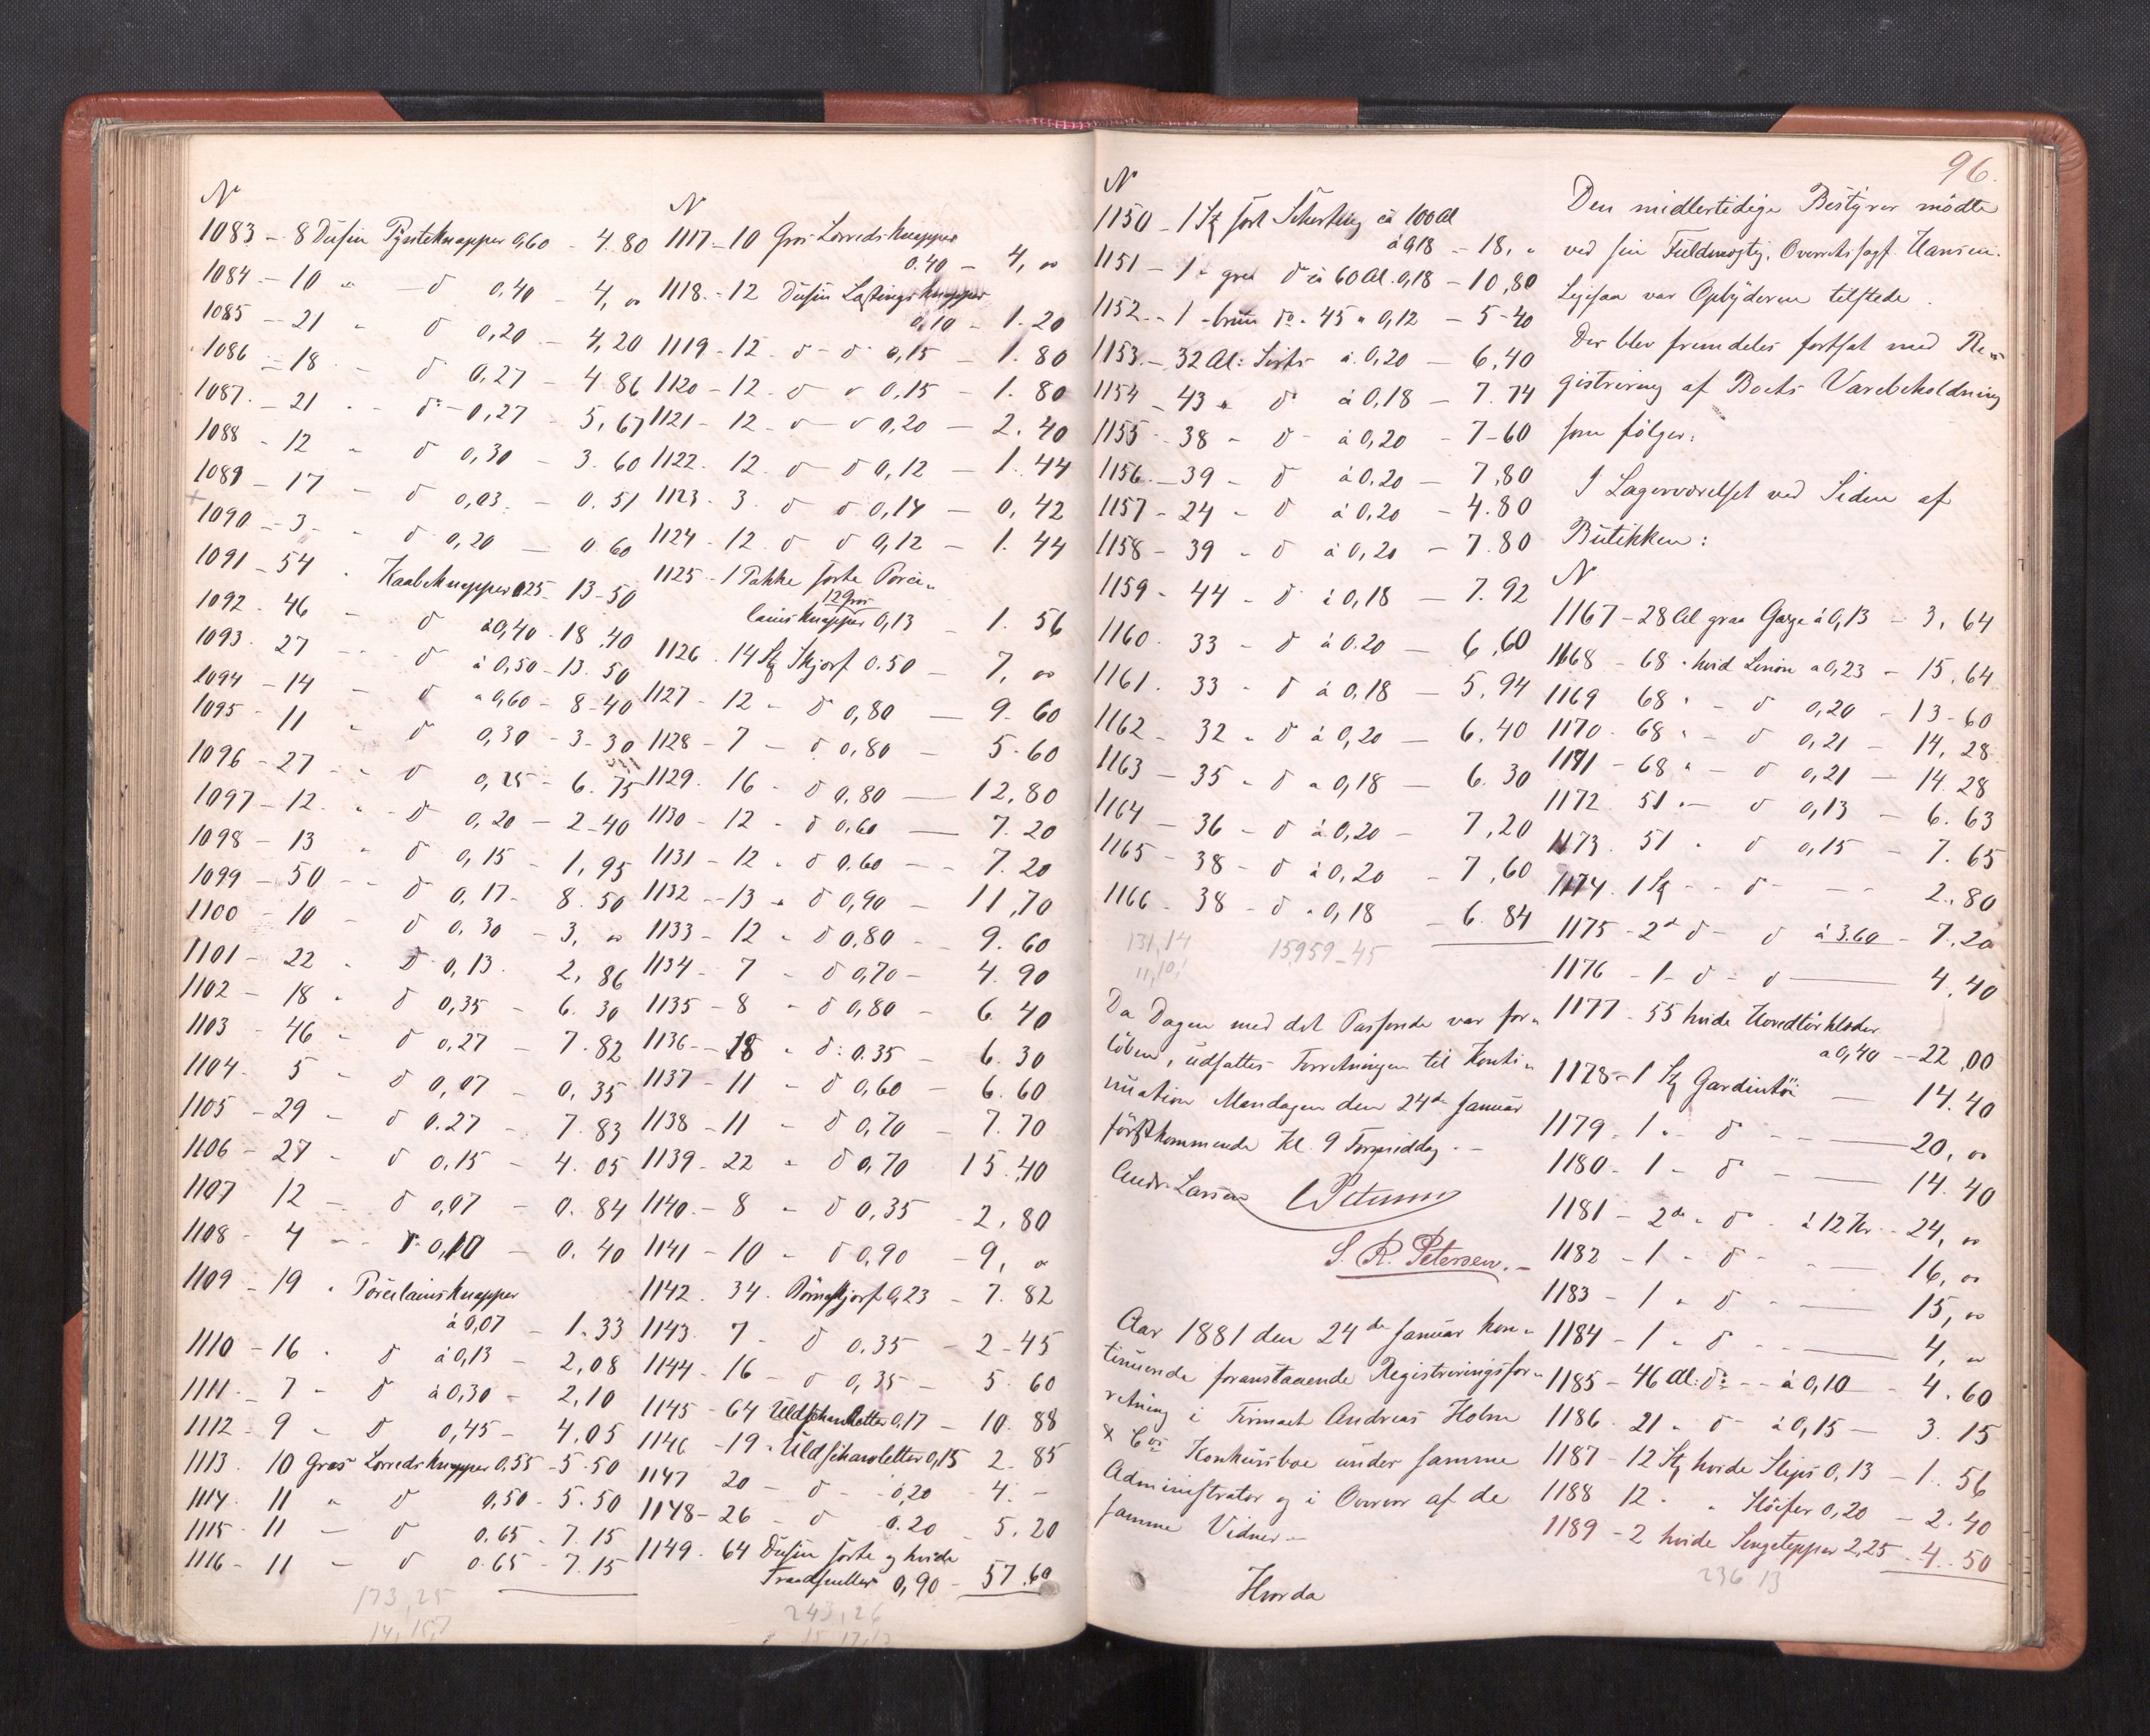 N
1083 - 8 Dusin Pynteknapper 0,60 - 4.80
1084 - 10 " - do 0,40 - 4, "
1085 - 21 - do 0,20 - 4,20
1086 - 18 - do 0,27 - 4.86
1087 - 21 - - do - 0,27 - 5,67
1088 - 12 - do 0,30 - 3.60
1089 - 17 - do 0,03 - 0.51
1090 - 3 - - do 0,20 - 0.60
1091 - 54 . Kaabeknapper 0.25 - 13-50
1092 - 46 - do à 0,40 - 18,40
1093 - 27 - - do à 0,50 - 13.50
1094 - 14 - do " 0,60 - 8-40
1095 - 11 " do 0,30 - 3-30
1096 - 27 - - do 0,25 - 6.75
1097 - 12 - - do 0,20 - 2-40
1098 - 13 " do 0,15 - 1,95
1099 - 50 - - do 0,17 - 8.50
1100 - 10 - do 0.30 - 3, "
1101 - 22 - do 0,13 - 2,86
1102 - 18 - do 0,35 - 6.30
1103 - 46 - do 0,27 - 7.82
1104 - 5 - do 0,07 - 0,35
1105 - 29 - do 0.27 - 7.83
1106 - 27 - do 0,15 - 4.05
1107 12 - do 0,07 - 0.84
1108 - 4 - - do 0,10 - 0.40
1109 - 19 " Porcelainsknapper
à 0,07 - 1.33
1110 - 16 . do à 0,13 - 2,08
1111 - 7 - do à 0,30 - 2,10
1112 - 9 - do 0,45 - 4.05
1113 . 10 Gros Lærredsknapper 0.55 - 5.50
1114 . 11 " do 0,50 - 5.50
1115 - 11 - do 0.65 - 7.15
1116 - 11 - do 0.65 - 7.15
173,25
N
1117 - 10 Gros Lærredsknapper
0.40 - 4, "
1118 - 12 Dusin Lastingsknapper
0,10 - 1.20
1119 - 12 - do - do 0,15 - 1.80
1120 - 12 - do do 0,15 - 1.80
1121 - 12 - do - do 0,20 - 2.40
1122 . 12 . do - do 0,12 - 1.44
1123 - 3 . do do 0,14 - 0,42
1124 - 12 do do 0,12 - 1.44
1125 - 1 Pakke sorte Porce-
12 Gros
lainsknapper 0,13 - 1.56
1126 . 14 Stk Skjørt 0.50 - 7, "
1127 - 12 - do 0,80 - 9-60
1128 - 7 - do 0.80 - 5-60
1129 . 16 - do 0,80 - 12,80
1130 - 12 - do 0,60 - 7.20
1131 - 12 - do 0.60 - 7.20
1132 - 13 - do 0,90 - 11,70
1133 - 12 - do 0,80 - 9.60
1134 - 7 - do 0,70 - 4.90
1135 - 8 - do 0,80 - 6.40
1136 - 18 - do 0.35 - 6.30
1137 - 11 - do 0,60 - 6.60
1138 - 11 - do 0,70 - 7.70
1139 - 22 - do 0,70 15.40
1140 - 8 - do 0,35 - 2,80
1141 - 10 - do 0,90 - 9, "
1142 . 34 . Børneskjørt 0,23 - 7.82
1143 . 7 - do 0.35 - 2-45
1144 - 16 - do 0,35 - 5.60
1145 - 64 Uldschawletter 0,17 - 10.88
1146 - 19 " Uldschawletter 0,15 2-85
1147 20 - do - 0,20 - 4. -
1148 - 26 - do 0.20 - 5.20
1149 . 64 Dusin sorte og hvide
Traadsneller 0,90 - 57.60
243,26
96.
N
1150 - 1 Stk sort Schirting ca 100 Al
à 0,18 - 18, "
1151 - 1 " graa do ca 60 Al. 0,18 - 10,80
1152 - 1 - brun do . 45 " 0,12 - 5-40
1153 - 32 Al: Sirts à 0,20 - 6,40
1154 - 43 " do à 0,18 - 7.74
1155 - 38 - do - à 0,20 - 7-60
1156 - 39 - do à 0.20 - 7,80
1157 - 24 - do à 0,20 - 4.80
1158 - 39 - do à 0,20 - 7.80
1159 - 44 - do à 0,18 - 7.92
1160 . 33 - do à 0.20 - 6,60
1161 . 33 - do à 0,18 - 5,94
1162 - 32 - do à 0,20 - 6.40
1163 - 35 - do " 0,18 - 6.30
1164 - 36 - do à 0,20 - 7,20
1165 - 38 - do à 0,20 - 7,60
1166 - 38 - do " 0,18 - 6.84
131,14 15959-45
Da Dagen med det Passerede var for-
løben, udsattes Forretningen til Konti-
nuation Mandagen den 24de Januar
førstkommende Kl. 9 Formiddag. -
Andr. Larsen CPetersen
S. R. Petersen. -
Aar 1881 den 24de Januar kon-
tinuerede foranstaaende Registreringsfor-
retning i Firmaet Andreas Holm
& Cos Konkursboe under samme
Administrator og i Overvær af de
samme Vidner -
Hvorda
Den midlertidige Bestyrer mødte
ved sin Fuldmægtig, Overretssagf. Hansen.
Ligesaa var Opbyderne tilstede .
Der blev fremdeles fortsat med Re-
gistrering af Boets Varebeholdning
som følger:
I Lagerværelset ved Siden af
Butikken:
N
1167 - 28 Al graa Gaze à 0,13 - 3,64
1168 - 68 " hvid Linon a 0,23 - 15,64
1169 68 " - do 0,20 - 13-60
1170 . 68 " - do 0,21 - 14,28
1171 - 68 " - do 0,21 - 14.28
1172 . 51 " - do 0,13 - 6.63
1173 . 51 " do 0,15 - 7.65
1174 . 1 Stk - - do - - - 2.,80
1175 - 2 do - do à 3.60 - 7.,20
1176 - 1 - do - do - 4,40
1177 - 55 hvide Hovedtørklæder
a 0,40 - 22,00
1178 - 1 Stk Gardintöi - 14.40
1179 - 1 " - do - - 20, "
1180 - 1 - do - 14.40
1181 - 2 do " do " à 12 Kr - 24, "
1182 - 1 - do - - 16, "
1183 - 1 " do - 15, "
1184 - 1 " do - - 4, "
1185 - 46 Al: do - - à 0,10 - 4.60
1186 . 21 " do - à 0,15 - 3.15
1187 - 12 Stk hvide Slips 0,13 - 1.56
1188 12 . " 0,20 - 2.40
1189 - 2 hvide Sengetepper 2,25 - 4.50
236 13